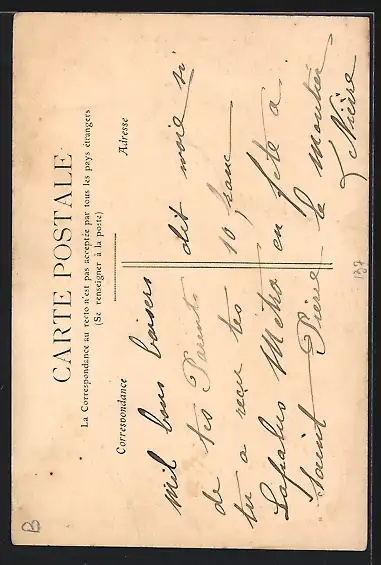 CARTE POSTALE
La Correspondance au recto n'est pas acceptée par tous les pays étrangers
(Se renseigner à la poste)
Correspondance
Adresse
mil bons baisers dit moie si
de tes Parents
tu a reçu tes 10, franc
Lapalus Metro en fete a
Saint Pierre le Moutier
Nièvre
137
B